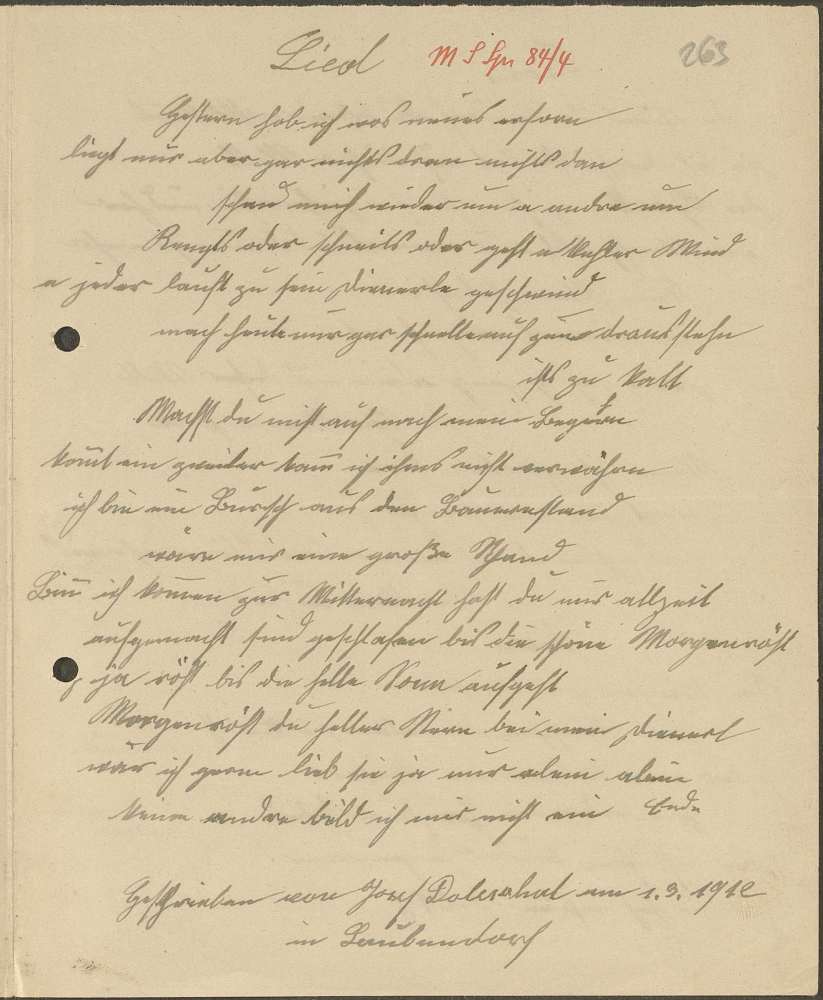 Lied M S Spr 84/4 263
Gestern hob ich was neues erforn
liegt mir aber gar nichts dran nichts dran
schau mich wieder um a andre um
Rengts oder schneits oder geht a kehler Wind
a jeder lauft zu sein Dienerle geschwind
mach heute nur gar schnelle auf zum draus stehn
ists zu kalt
Machst du nicht auf nach mein Begern
komt ein zweiter kann ich ihms nicht verwähren
ich bin ein Bursch aus den Bauernstand
wäre mir eine große Schand
Binn ich kommen zur Mitternacht hast du mir allzeit
aufgemacht sind geschlafen bis die schöne Morgenröht
ja röht bis die helle Sonn aufgeht
Morgenröht du heller Stern bei mein Dienerl
wär ich gern lieb sie ja nur alein alein
keine andre bild ich mir nicht ein Ende
Geschrieben von Josef Doleschal am 1. 3. 1912
in Laubendorf